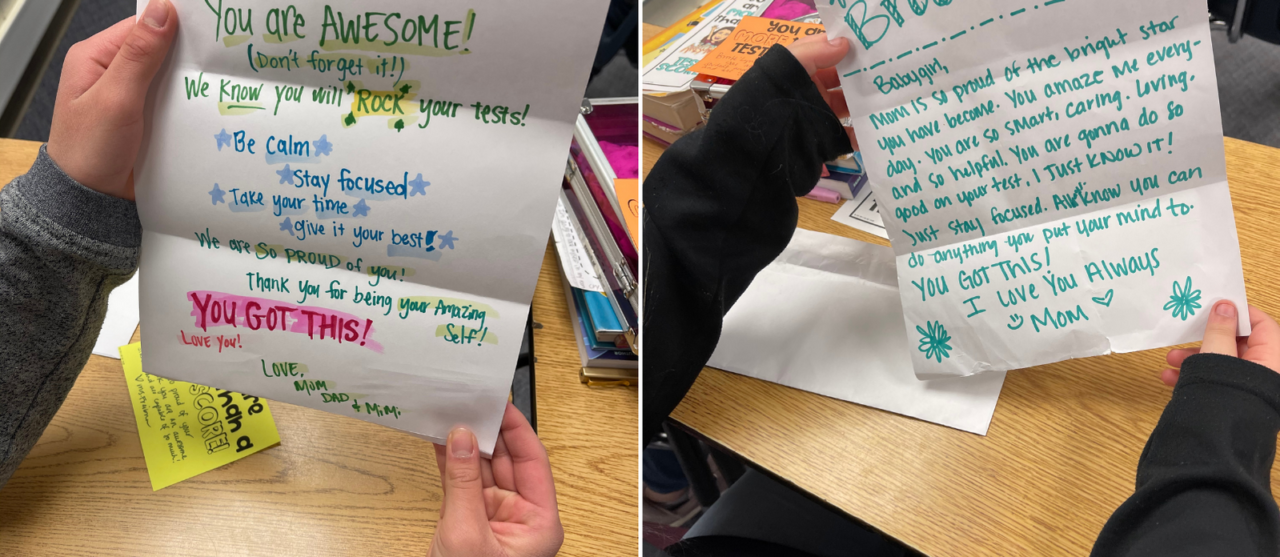 You are AWESOME!
(Don't forget it!)
We know you will ROCK your tests!
Be calm
Stay focused
Take your time
give it your best!
We are So PROUD of you!
Thank you for being your Amazing
Self!
YOU GOT THIS!
LOVE YOU!
LOVE,
MOM,
DAD
& MiMi
than a
SCORE!
Babygirl,
Mom is so proud of the bright star
you have become. You amaze me every-
day. You are so smart, caring. Loving.
and so helpful. You are gonna do so
good on your test. I Just KNOW iT!
Just stay focused. know you can
do anything you put your mind to.
YOU GOT THIS!
I Love You Always
Mom
YOU ARE
MORE
TEST